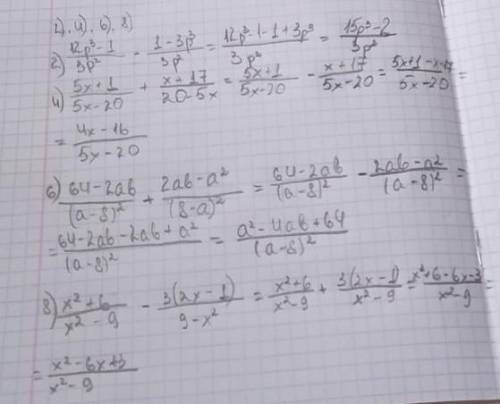 2), 4), 6), 8)
2) (12p³-1)/(3p²) - (1-3p³)/(3p²) = (12p³-1-1+3p³)/(3p²) = (15p³-2)/(3p²)
4) (5x+1)/(5x-20) + (x+17)/(20-5x) = (5x+1)/(5x-20) - (x+17)/(5x-20) = (5x+1-x-17)/(5x-20) =
= (4x-16)/(5x-20)
6) (64-2ab)/(a-8)² + (2ab-a²)/(8-a)² = (64-2ab)/(a-8)² - (2ab-a²)/(a-8)² =
= (64-2ab-2ab+a²)/(a-8)² = (a²-4ab+64)/(a-8)²
8) (x²+6)/(x²-9) - 3(2x-1)/(9-x²) = (x²+6)/(x²-9) + 3(2x-1)/(x²-9) = (x²+6-6x-3)/(x²-9) =
= (x²-6x+3)/(x²-9)